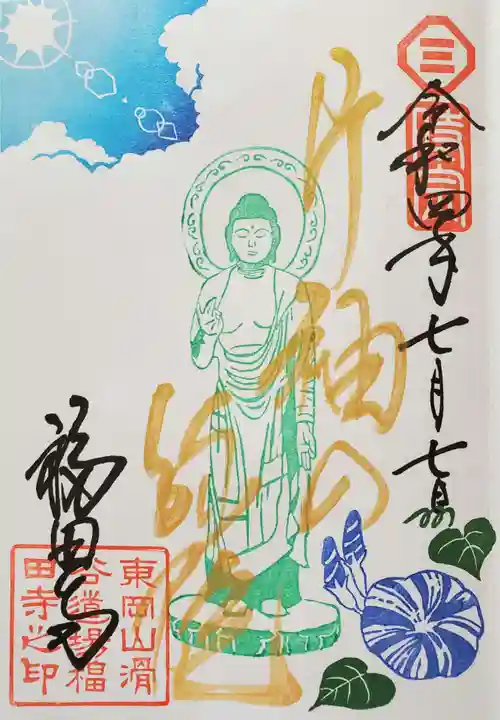 三
令和四年七月七日
片袖の
福田寺
東岡山滑
谷道場福
田寺之印